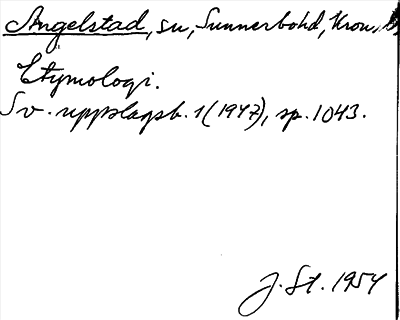 Angelstad, sn, Sunnerbohd, Kron.
Etymologi.
Sv. uppslagsb. 1(1947), sp. 1043.
J. St. 1954